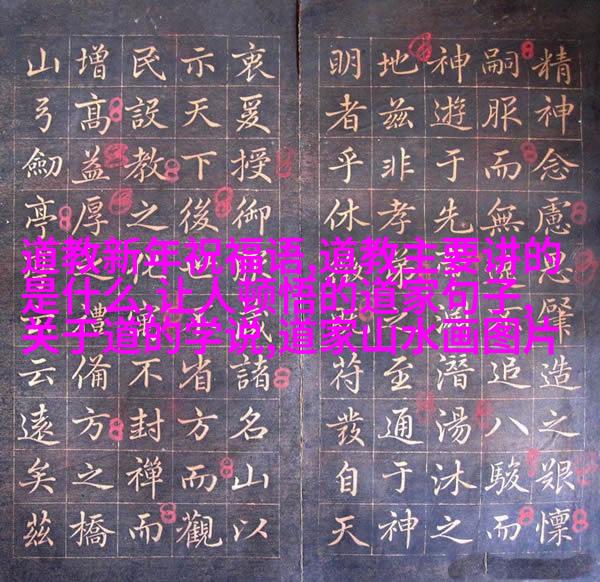 道教新年祝福语,道教主要讲的
是什么,让人顿悟的道家句子,
关于道的学说,道家山水画图片
精神念慮肇造之艱懍
嗣服而無追八駿而
神遊于先之潛湯沐之
地茲非孝弟之至通于神
明者乎休符發自天
衷爰授御諸名山以
示天下後世省方而觀
民設教之不封禪而
增高益厚禮備方之橋
山弓劍亭云遠矣茲